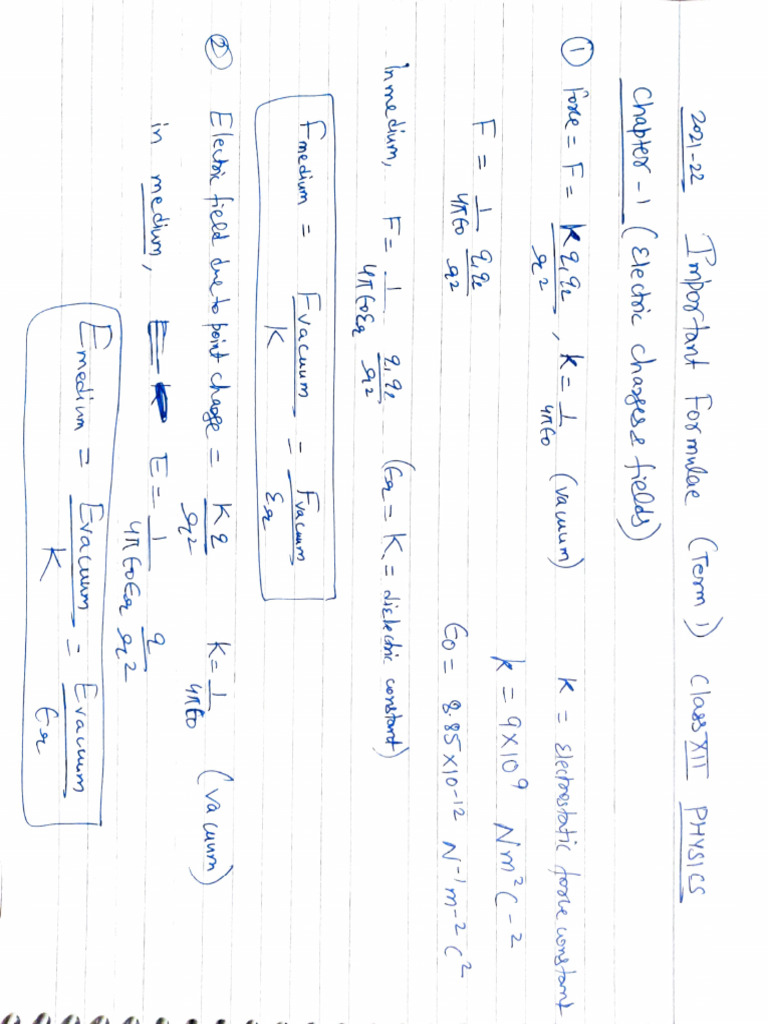 2021-22 Important Formulae (Term 1) Class XII PHYSICS
Chapter-1 (Electric charges & fields)
① Force = F = k q₁q₂ / r² , k = 1 / 4πε₀ (vacuum) k = Electrostatic force constant
F = 1 / 4πε₀ q₁q₂ / r² k = 9×10⁹ Nm²C⁻²
ε₀ = 8.85×10⁻¹² N⁻¹m⁻²C²
In medium, F = 1 / 4πε₀εr q₁q₂ / r² (εr = K = dielectric constant)
Fmedium = Fvacuum / K = Fvacuum / εr
② Electric field due to point charge = Kq / r² K = 1 / 4πε₀ (vacuum)
in medium, E = 1 / 4πε₀εr q / r²
Emedium = Evacuum / K = Evacuum / εr